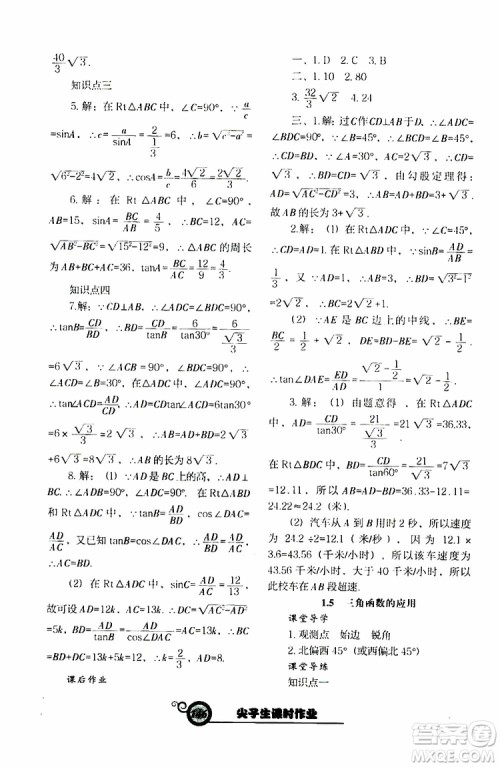 40/3 √3.
知识点三
5.解：在 Rt△ABC 中，∠C=90°，∵ a/c
=sinA，∴c= a/sinA = 2/(1/3) =6，∴b=√(c²-a²) =
√(6²-2²)=4√2，∴cosA= b/c = 4√2/6 = 2√2/3.
6.解：在 Rt△ABC 中，∠C=90°，
AB=15，sinA= BC/AB = 4/5，∴BC=12，AC=
√(AB²-BC²)=√(15²-12²)=9，∴△ABC 的周长
为 AB+BC+AC=36，tanA= BC/AC = 12/9 = 4/3.
知识点四
7.解：∵CD⊥AB，∴∠ACD=∠BDC=90°，
∴tanB= CD/BD，∴BD= CD/tanB = 6/tan30° = 6/(√3/3)
=6√3，∵∠A+∠B=90°，∠A+∠ACD
=90°，∴∠ACD=∠B=30°，
∵tan∠ACD= AD/CD，∴AD=CD·tanACD=6tan30°
=6× √3/3 =2√3，∴AB=AD+BD=2√3
+6√3=8√3.
8.解：(1)∵AD 是 BC 上的高，∴AD⊥BC，
∴∠ADB=90°，∠ADC=90°，∵tanB=
AD/BD，cos∠DAC= AD/AC，又已知 tanB=cosDAC，
∴ AD/BD = AD/AC，∴AC=BD.
(2)在 Rt△ADC 中，sinC= AD/AC = 12/13，
故可设 AD=12k，AC=13k，∴CD=√(AC²-AD²)=
5k，∵BD= AD/tanB = AD/cosDAC =AC=13k，∴BC=
13k+5k=18k，∴18k=12，k= 2/3，∴AD=8.
课后作业
一、1.D 2.C 3.B
二、1.10 2.80
3. 32/3 √3 4.24
三、1.解：过C作CD⊥AB于D，∴∠ADC=
∠BDC=90°，∵∠B=45°，∴∠BCD=∠B=45°，
∴CD=BD，∵∠A=30°，AC=2√3，∴CD=
√3，∴BD=CD=√3，由勾股定理得：AD=
√(AC²-CD²)=3，∴AB=AD+BD=3+√3，
故 AB 的长为 3+√3.
2.解：(1)在 Rt△ABD 中，∵sinB= AD/AB =
1/3，又 AD=1，∴AB=3，∴BD=√(3²-1²)
=2√2，∴BC=BD+CD=2√2+1.
(2)∵AE 是 BC 边上的中线，∴BE=
BC/2 = √2+ 1/2，∴DE=BD-BE=√2- 1/2，
∴tan∠DAE= ED/AD = (√2-1/2)/1 = √2- 1/2.
3.解：(1)由题意得，在 Rt△ADC 中，
AD= CD/tan30° = 21/(√3/3) =21√3=36.33，
在 Rt△BDC 中，BD= CD/tan60° = 21/√3 =7√3
=12.11，∴AB=AD-BD=36.33-12.11=
24.22≈24.2(米).
(2)汽车从 A 到 B 用时 2 秒，所以速度
为 24.2÷2=12.1(米/秒)，因为 12.1×
3.6=43.56(千米/小时)，所以该车速度为
43.56 千米/小时，大于 40 千米/小时，所以
此校车在 AB 段超速.
1.5 三角函数的应用
课堂导学
1.观测点 始边 锐角
2.北偏西 45°(或西偏北 45°)
课堂导练
知识点一
146 尖子生课时作业